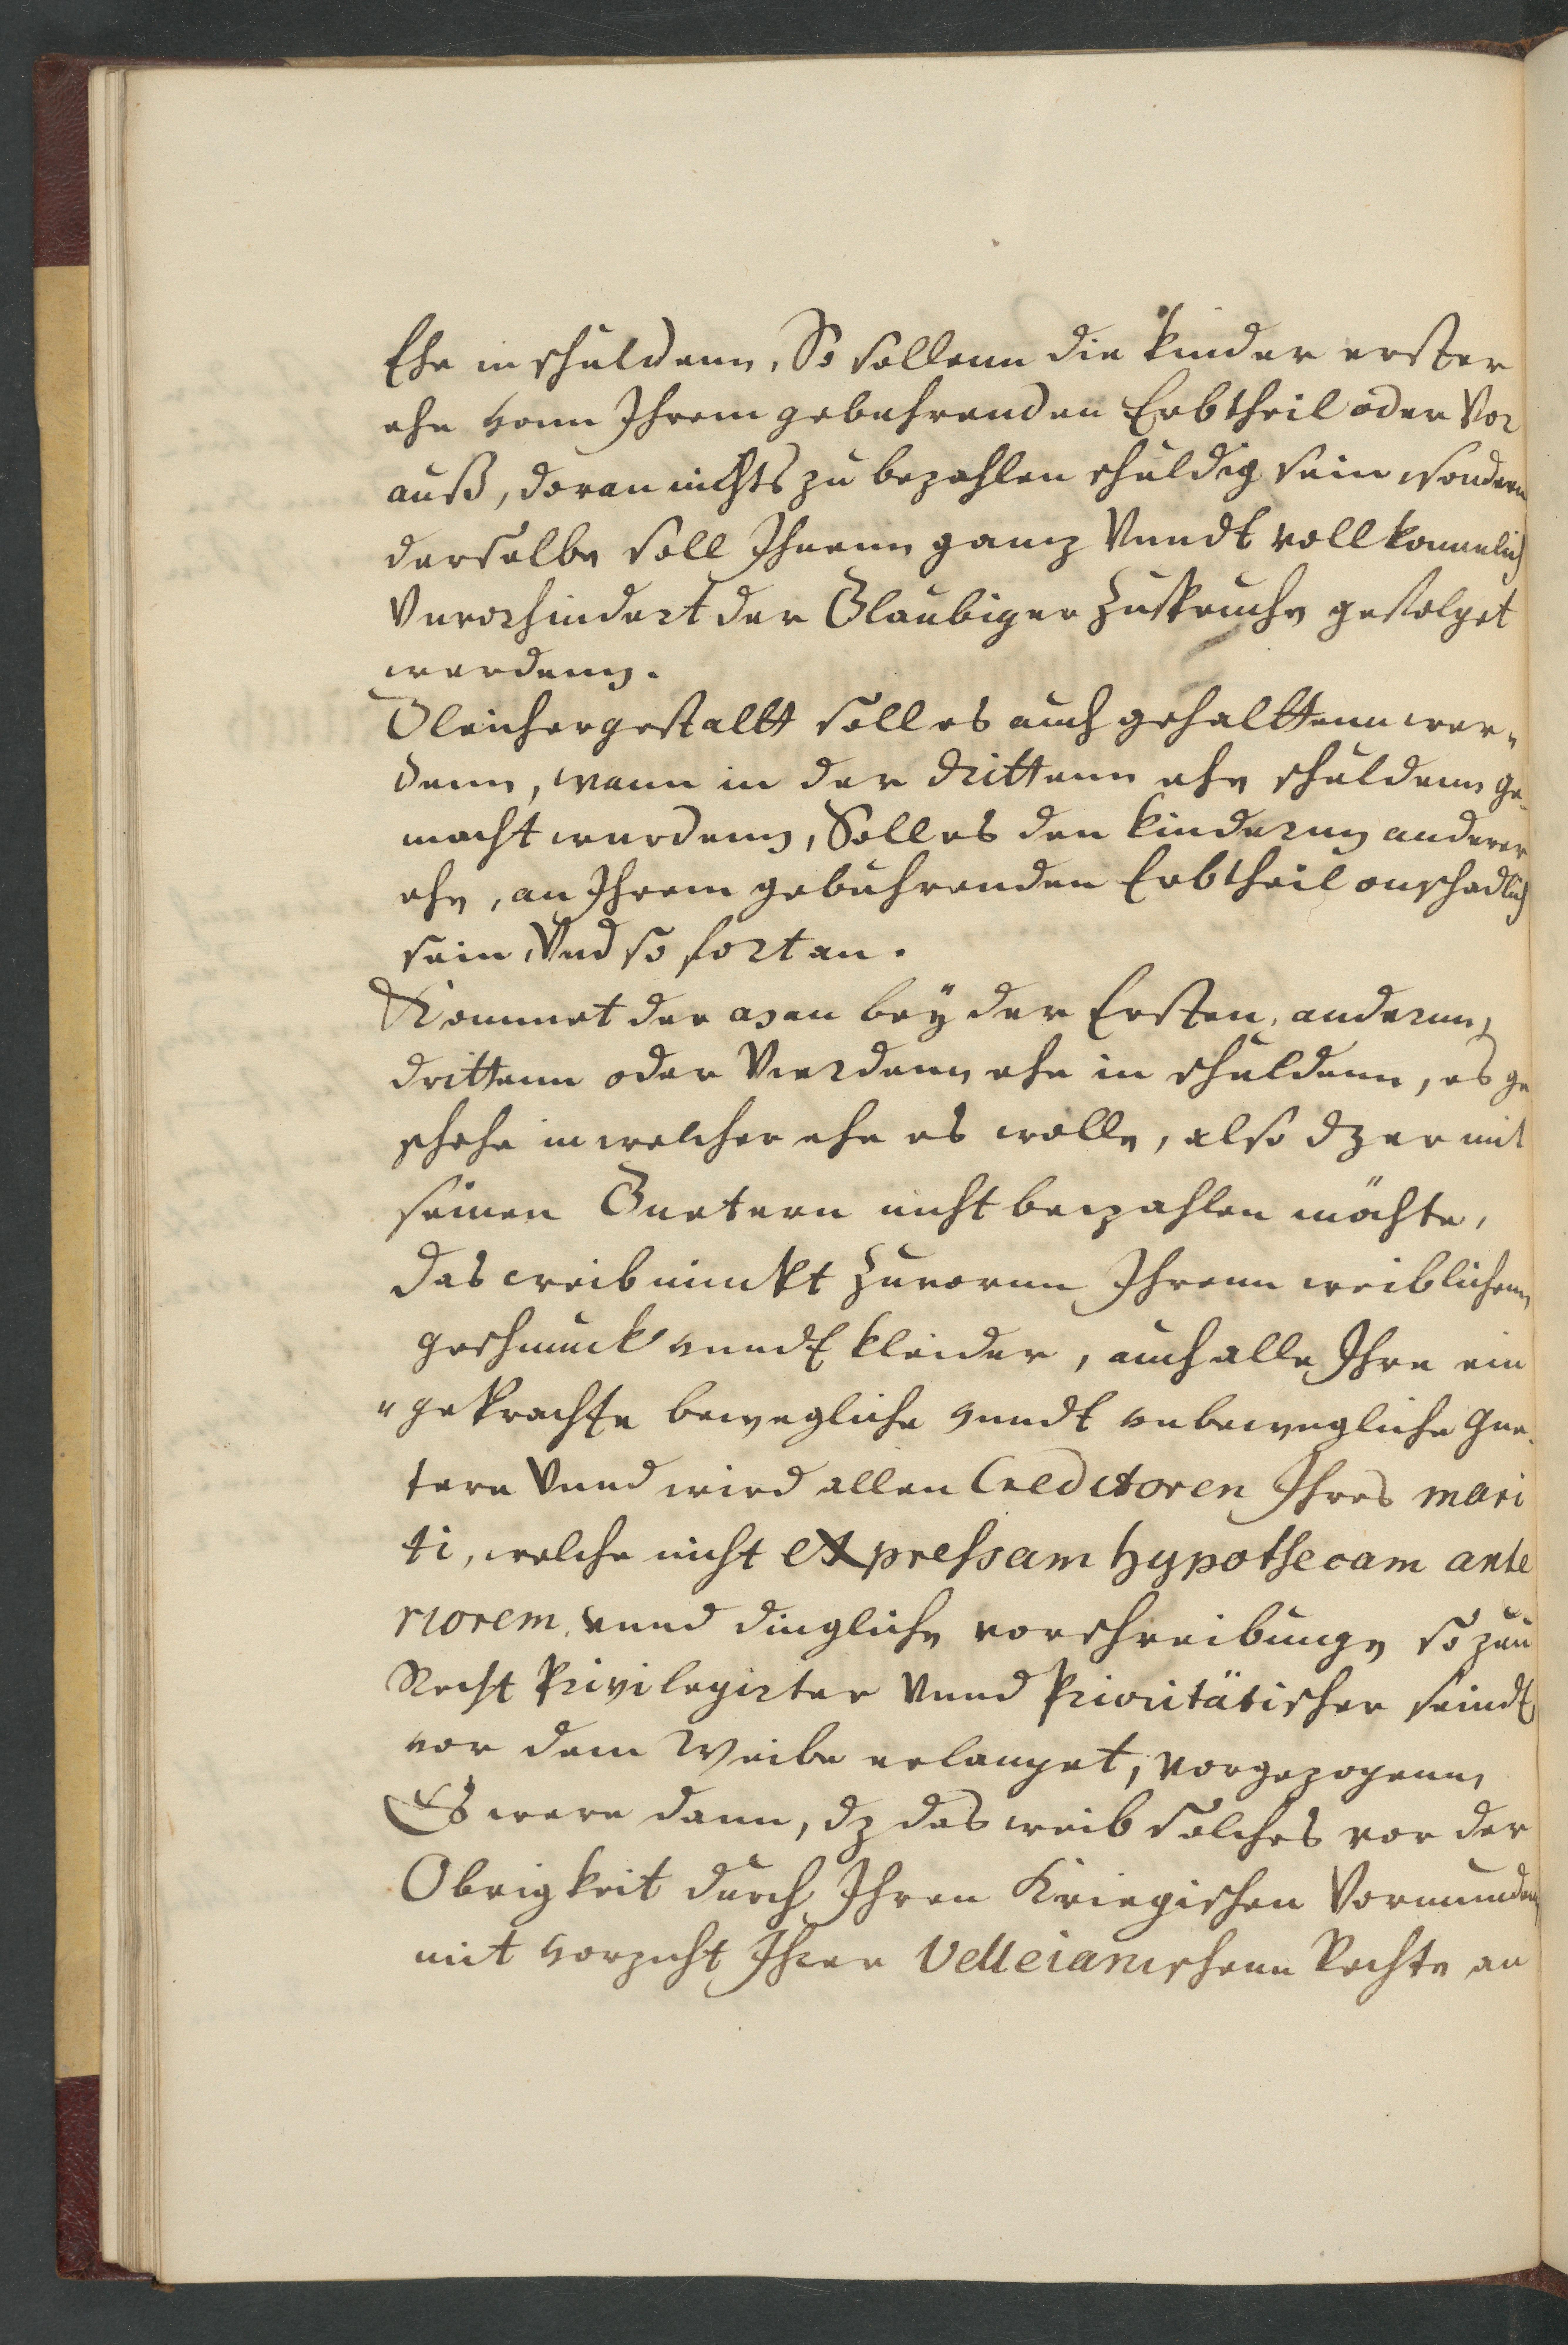 Ehe in schuldenn, So sollenn die kinder erster
ehe vonn Ihrem gebuhrenden Erbtheil oder Vor
auß, doran nichts zu bezahlen schuldig sein sondern
derselbe soll Ihnenn ganz Vnndt vollkommelich
Vnvorhindert der Glaubiger Zuspruche gefolget
werdenn.
Gleichergestallt soll es auch gehalttenn wer„
denn, wann in der drittenn ehe schuldenn ge„
macht wurdenn, Soll es den kindernn anderer
ehe, an Ihrem gebuhrenden Erbtheil onschadlich
sein, Vnd so fort an.
Kommet der man beÿ der Ersten, andernn,
drittenn oder Vierdenn ehe in schuldenn, es ge
schehe in welcher ehe es wolle, also dz er mit
seinen Guetern nicht bezahlen möchte,
das weib nimbt Zuvornn Ihrenn weiblichenn
geschmuck vnndt kleider, auch alle Ihre ein
„gebrachte bewegliche vnndt vnbewegliche gue„
tere Vnnd wird allen Creditoren Ihres mari
ti, welche nicht expressam hypothecam ante
riorem vnnd dingliche vorschreibunge so zu
Recht Privilegirter Vnnd Prioritätischer seindt
vor dem Weibe erlanget, vorgezogenn,
Es were dann, dz das weib solches vor der
Obrigkeit durch Ihren Kriegischen Vormunden
mit vorzicht Ihrer Velleianischenn Rechte an